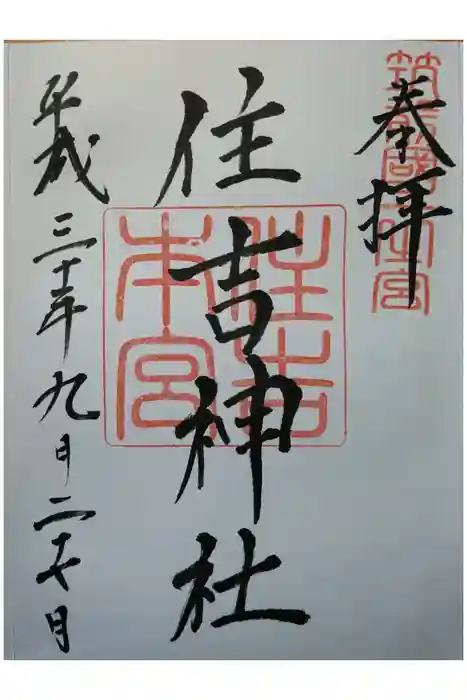 奉拝
筑前國一之宮
住吉神社
住吉本宮
平成三十年九月二十七日